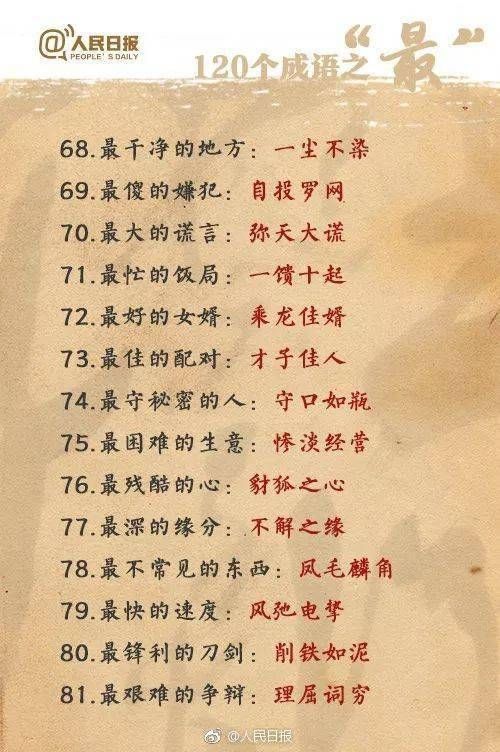 @人民日报
PEOPLE'S DAILY
120个成语之“最”
68.最干净的地方：一尘不染
69.最傻的嫌犯：自投罗网
70.最大的谎言：弥天大谎
71.最忙的饭局：一馈十起
72.最好的女婿：乘龙佳婿
73.最佳的配对：才子佳人
74.最守秘密的人：守口如瓶
75.最困难的生意：惨淡经营
76.最残酷的心：豺狐之心
77.最深的缘分：不解之缘
78.最不常见的东西：凤毛麟角
79.最快的速度：风弛电掣
80.最锋利的刀剑：削铁如泥
81.最艰难的争辩：理屈词穷
@人民日报